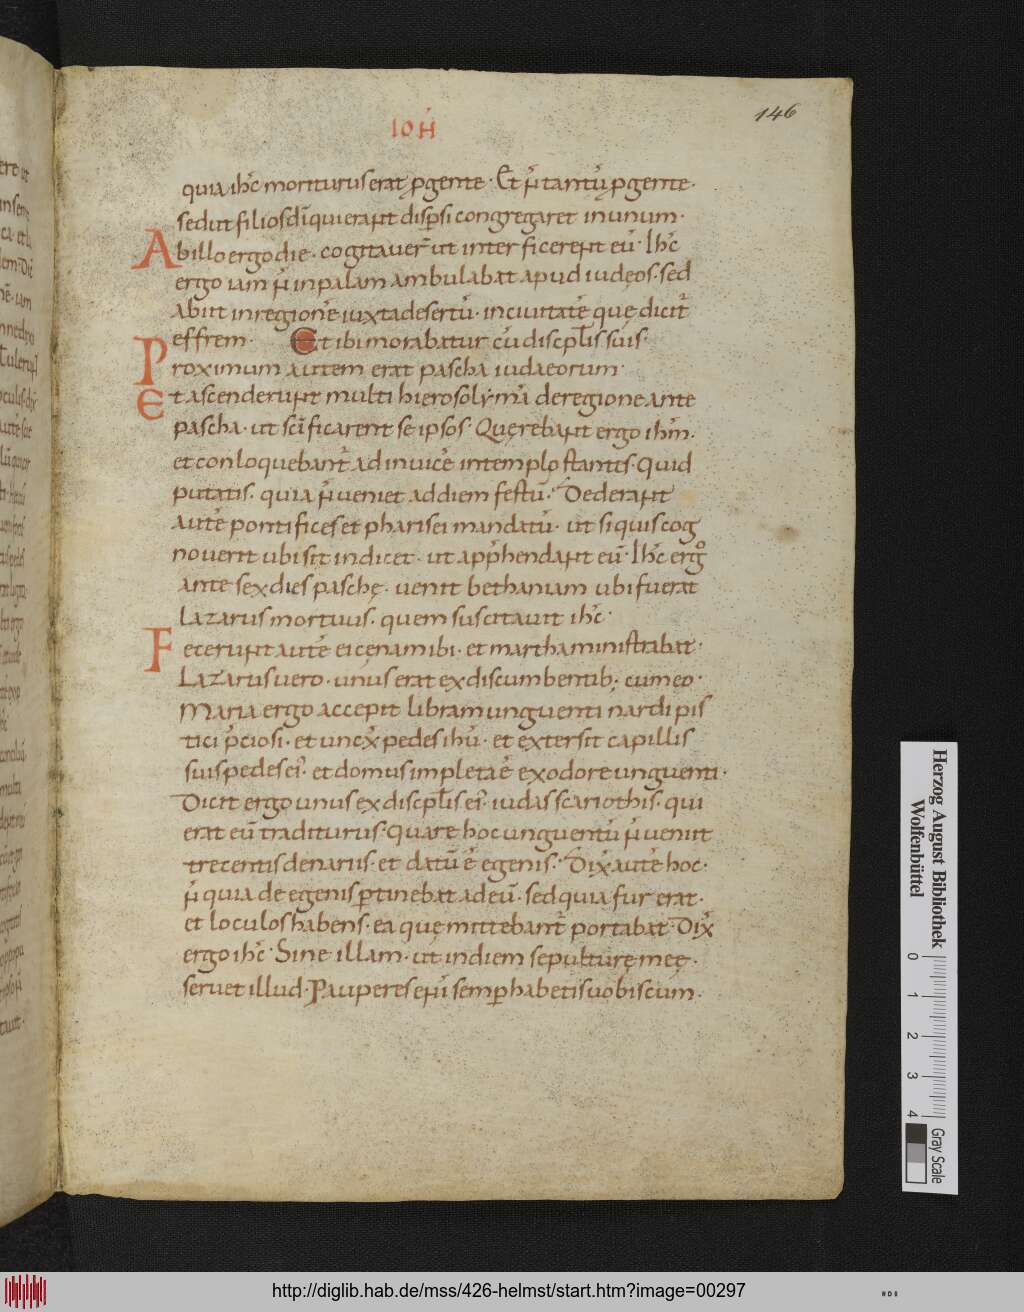 146
IOH̅
quia ihc̅ moriturus erat ꝓ gente · Et n̅ tantu̅ ꝓ gente ·
sed ut filios di̅ qui erant disp̲si congregaret in unum ·
Ab illo ergo die · cogitauer̅ ut interficerent eu̅ · Ihc̅
ergo iam n̅ in palam ambulabat apud iudęos · sed
abiit in regione̅ iuxta desertu̅ · in ciuitate̅ quę dicit̅
effrem · Et ibi morabatur cu̅ discpl̅is suis ·
Proximum autem erat pascha iudaeorum ·
Et ascenderunt multi hierosolyma̅ de regione ante
pascha · ut sc̅ificarent se ipsos · Quęrebant ergo ihm̅ ·
et conloquebant̅ ad inuice̅ in templo stantes · Quid
putatis · quia n̅ ueniet ad diem festu̅ · Dederant
aute̅ pontifices et pharisei mandatu̅ · ut si quis cog
nouerit ubi sit indicet · ut app̅hendant eu̅ · Ihc̅ ergo
ante sex dies paschę · uenit bethaniam ubi fuerat
Lazarus mortuus · quem suscitauit ihc̅ ·
Fecerunt aute̅ ei cęnam ibi · et martha ministrabat ·
Lazarus uero · unus erat ex discumbentib; cum eo ·
Maria ergo accepit libram unguenti nardi pis
tici p̅ciosi · et unex̅ pedes ihu̅ · et extersit capillis
suis pedes ei̅ · et domus impleta e̅ ex odore unguenti ·
Dicit ergo unus ex discpl̅is ei̅ · iudas scariothis · qui
erat eu̅ traditurus · Quare hoc unguentu̅ n̅ ueniit
trecentis denariis · et datu̅ e̅ egenis · Dix̅ aute̅ hoc ·
n̅ quia de egenis p̲tinebat ad eu̅ · sed quia fur erat ·
et loculos habens · ea quę mittebant̅ portabat · Dix̅
ergo ihc̅ · Sine illam · ut in diem sepulturę meę ·
seruet illud · Pauperes eni̅ semp̲ habetis uobiscum ·
Herzog August Bibliothek
Wolfenbüttel
0 1 2 3 4
Gray Scale
http://diglib.hab.de/mss/426-helmst/start.htm?image=00297